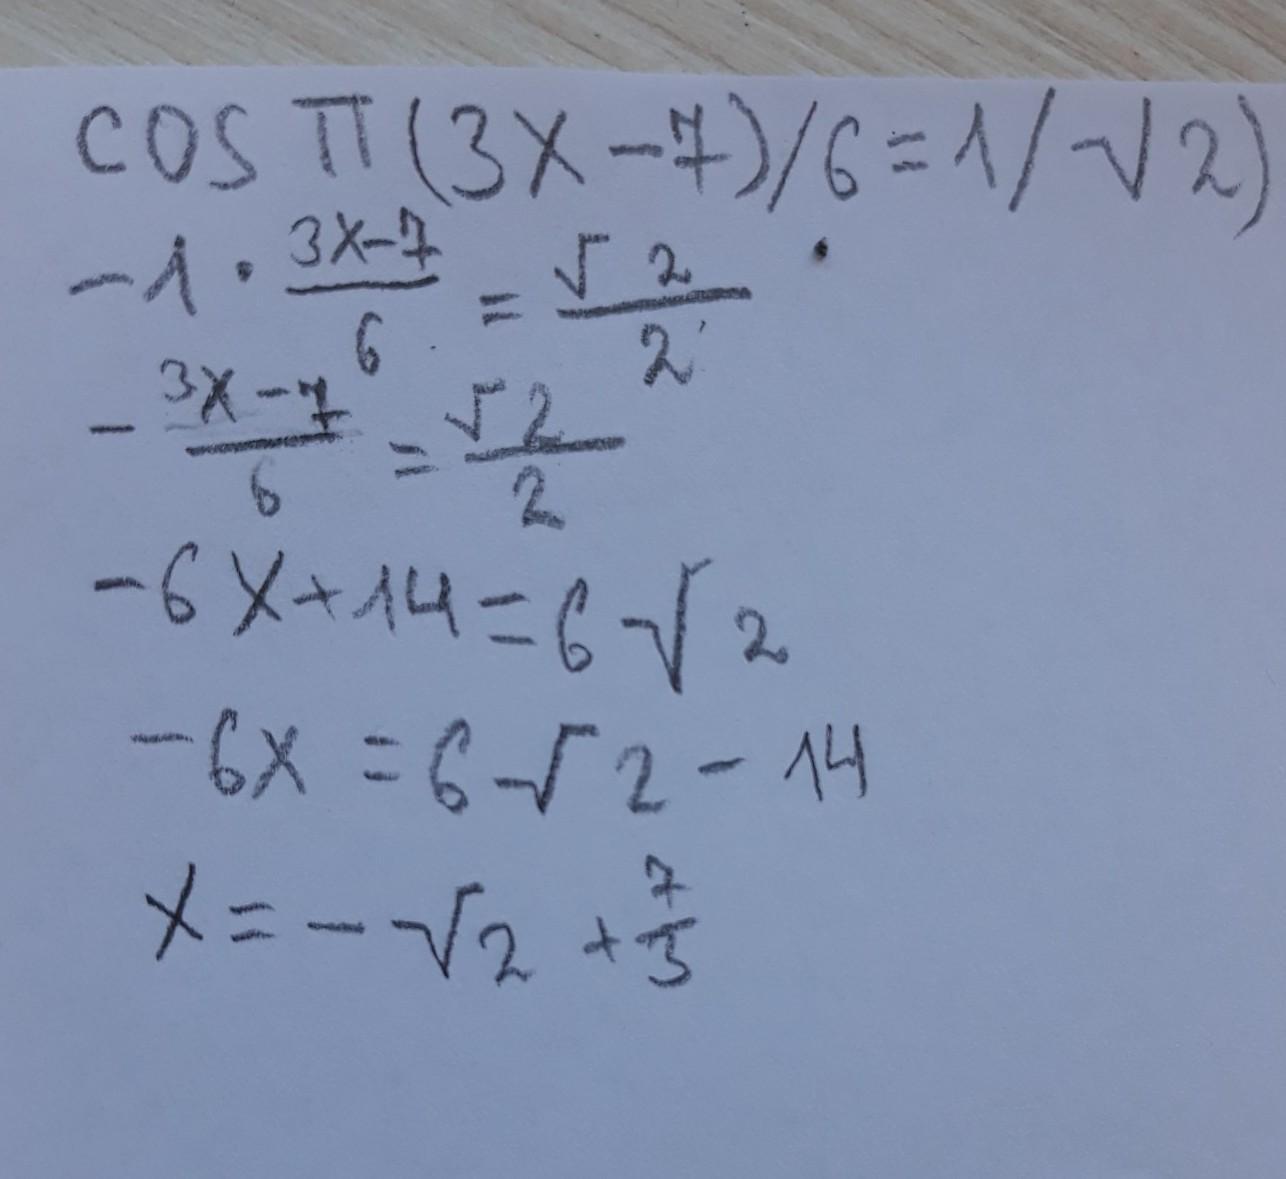 cos π(3x-7)/6=1/√2)
-1·\frac{3x-7}{6}=\frac{√2}{2}
-\frac{3x-7}{6}=\frac{√2}{2}
-6x+14=6√2
-6x=6√2-14
x=-√2+\frac{7}{3}